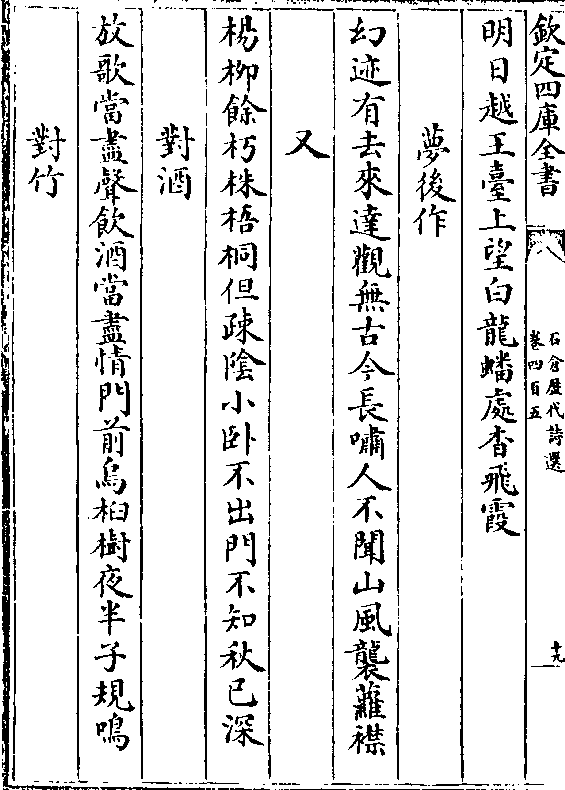 欽定四庫全書
石倉歷代詩選
卷四百五
十九
明日越王臺上望白龍蟠處杳飛霞
夢後作
幻迹有去來達觀無古今長嘯人不聞山風襲蘿襟
又
楊柳餘朽株梧桐但疎陰小卧不出門不知秋已深
對酒
放歌當盡聲飲酒當盡情門前烏桕樹夜半子規鳴
對竹